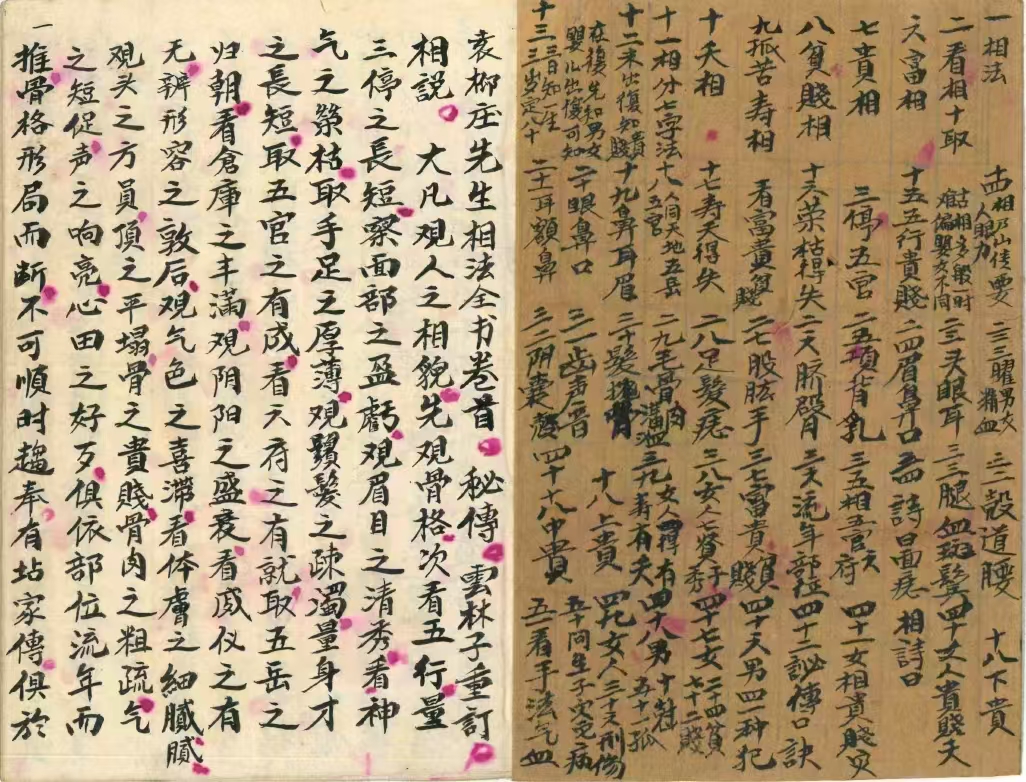 一相法 十四相乃山佳要 人眼力 二三三曜男女 精血 三二殼道腰 十八下贵
二看相十取 姑相多般时 难偏嬰女不同 二三头眼耳 三三腿血斑髮 四十女人貴賤夭
六富相 十五五行貴賤 二四眉鼻口 詩曰面痣 相詩曰
七贵相 三停五官 二五項背乳 三五相五官六府 四十一女相貴賤
八貧賤相 十六荣枯得失 二六脐 三六流年部位 四十二訟傳口訣
九孤苦寿相 看富貴貧賤 二七股肱手 三七富贵貧賤 四十六男四一种犯
十夭相 十七寿夭得失 二八足髮痣 三八女人七賢 四十七女二十四貧 七十二賤
十一相分七字法 十八人同天地五岳五官 二九毛骨 三九女人得有 寿有夭 四十八男十 五十一孤
十二未出復知貴賤 十九鼻耳眉 三十髮 十八上贵 四九女人三十六刑傷
在復先知男女 嬰儿出復可知 二十眼鼻口 三一齿声音 五十同生子灾疾病
十三三日知一生 三岁定八十 二十一耳額鼻 三二阴囊 四十八中贵 五一看手法气血
袁柳庄先生相法全书卷首 秘傳 雲林子重訂
相説 大凡观人之相貌先观骨格次看五行量
三停之長短察面部之盈虧观眉目之清秀看神
气之榮枯取手足之厚薄观鬚髮之疎濁量身才
之長短取五官之有成看六府之有就取五岳之
归朝看倉庫之丰滿观阴阳之盛衰看威仪之有
无辨形容之敦后观气色之喜滞看体膚之細膩膩
观头之方員頂之平塌骨之貴賤骨肉之粗疏气
之短促声之响亮心田之好歹俱依部位流年而
一
推骨格形局而断不可順时趨奉有玷家傳俱於